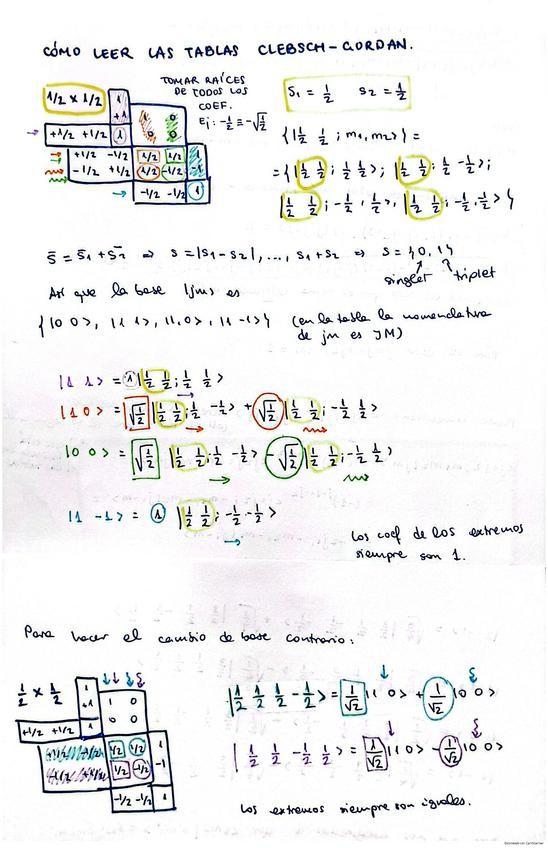 CÓMO LEER LAS TABLAS CLEBSCH-GORDAN.
1/2 x 1/2
1
+1
1 0
0 0
+1/2 +1/2 1
+1/2 -1/2 1/2 1/2 1
-1/2 +1/2 1/2 -1/2 -1
-1/2 -1/2 1
TOMAR RAÍCES
DE TODOS LOS
COEF.
Ej: -1/2 ≡ -√1/2
S1 = 1/2 S2 = 1/2
{|1/2 1/2 ; m1, m2>} =
= {|1/2 1/2 ; 1/2 1/2>; |1/2 1/2 ; 1/2 -1/2>;
|1/2 1/2 ; -1/2 1/2>, |1/2 1/2 ; -1/2 -1/2>}
S̄ = S̄1 + S̄2 ⇒ S = |S1 - S2|, ..., S1 + S2 ⇒ S = {0, 1}
singlet triplet
Así que la base |jm> es
{|0 0>, |1 1>, |1, 0>, |1 -1>} (en la tabla la nomenclatura
de jm es JM)
|1 1> = 1 |1/2 1/2 ; 1/2 1/2>
|1 0> = √1/2 |1/2 1/2 ; 1/2 -1/2> + √1/2 |1/2 1/2 ; -1/2 1/2>
|0 0> = √1/2 |1/2 1/2 ; 1/2 -1/2> - √1/2 |1/2 1/2 ; -1/2 1/2>
|1 -1> = 1 |1/2 1/2 ; -1/2 -1/2>
Los coef de los extremos
siempre son 1.
Para hacer el cambio de base contrario:
1/2 x 1/2
1
+1
1 0
0 0
+1/2 +1/2 1
+1/2 -1/2 1/2 1/2 1
-1/2 +1/2 1/2 -1/2 -1
-1/2 -1/2 1
|1/2 1/2 1/2 -1/2> = 1/√2 |1 0> + 1/√2 |0 0>
|1/2 1/2 -1/2 1/2> = 1/√2 |1 0> - 1/√2 |0 0>
Los extremos siempre son iguales.